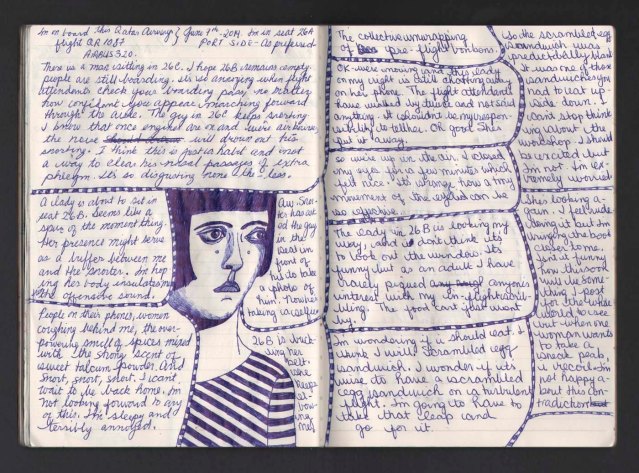 Im on board this Qatar Airways June 7th 2014. Im in seat 26A
flight QR 1087 PORT SIDE - As preferred.
AIRBUS 320.
There is a man sitting in 26C. I hope 26B remains empty
people are still boarding. Its so annoying when flight
attendents check your boarding pass, no matter
how confident you appear marching forward
through the aisle. The guy in 26C keeps snorting.
I know that once engines are on and we're airbourne,
the noise will drown out his
snorting. I think this is just a habit and not
a way to clear his nasal passages of extra
phlegm. Its so disgusting none-the-less.
A lady is about to sit in
seat 26B. Seems like a
spur of the moment thing.
Her presence might serve
as a buffer between me
and the snorter. Im hop
ing her body insulates me
the offensive sound.
People on their phones, women
coughing behind me, the over-
powering smell of spices mixed
with the strong scent of
sweet talcum powder. And
snort, snort, snort. I cant
wait to be back home. Im
not looking forward to any
of this. I'm sleepy and
terribly annoyed.
Aw. Snor-
ter has ask
ed the guy
in the
seat in
front of
his to take
a photo of
him. Now hes
taking a selfie
26B is
ing her
belt.
She
keeps
el-
bow-
ing
me!
The collective unwrapping
of pre-flight bonbons.
OK. We're moving and this lady
on my right is still chatting away
on her phone. The flight attendents
have walked by twice and not said
anything. It shouldnt be my respon-
sibility to tell her. Oh good. Shes
put it away.
So we're up in the air. I closed
my eyes for a few minutes which
felt nice. Its strange how a tiny
movement of the eyelids can be
so effective.
The lady in 26B is looking my
way, and I dont think its
to look out the window. Its
funny but as an adult I have
rarely piqued anyones
interest with my in-flight scrib-
bling. The food cart just went
by.
Im wondering if I should eat. I
think I will. Scrambled egg
sandwich. I wonder if its
wise to have a scrambled
egg sandwich on a turbulent
flight. Im going to have to
take that leap and
go for it.
So the scrambled egg
sandwich was
predictably bland
It was one of those
sandwiches you
had to eat up-
side down. I
cant stop think
ing about the
workshop. I should
be excited but
Im not. Im ex-
tremely worried.
Shes looking a-
gain. I feel rude
doing it but Im
bringing the book
closer to me.
Isnt it funny
how this book
will be some-
thing I post
for the whole
world to see
but when one
woman wants
to take a
sneak peak,
I recoil. Im
not happy a-
bout this con-
tradiction